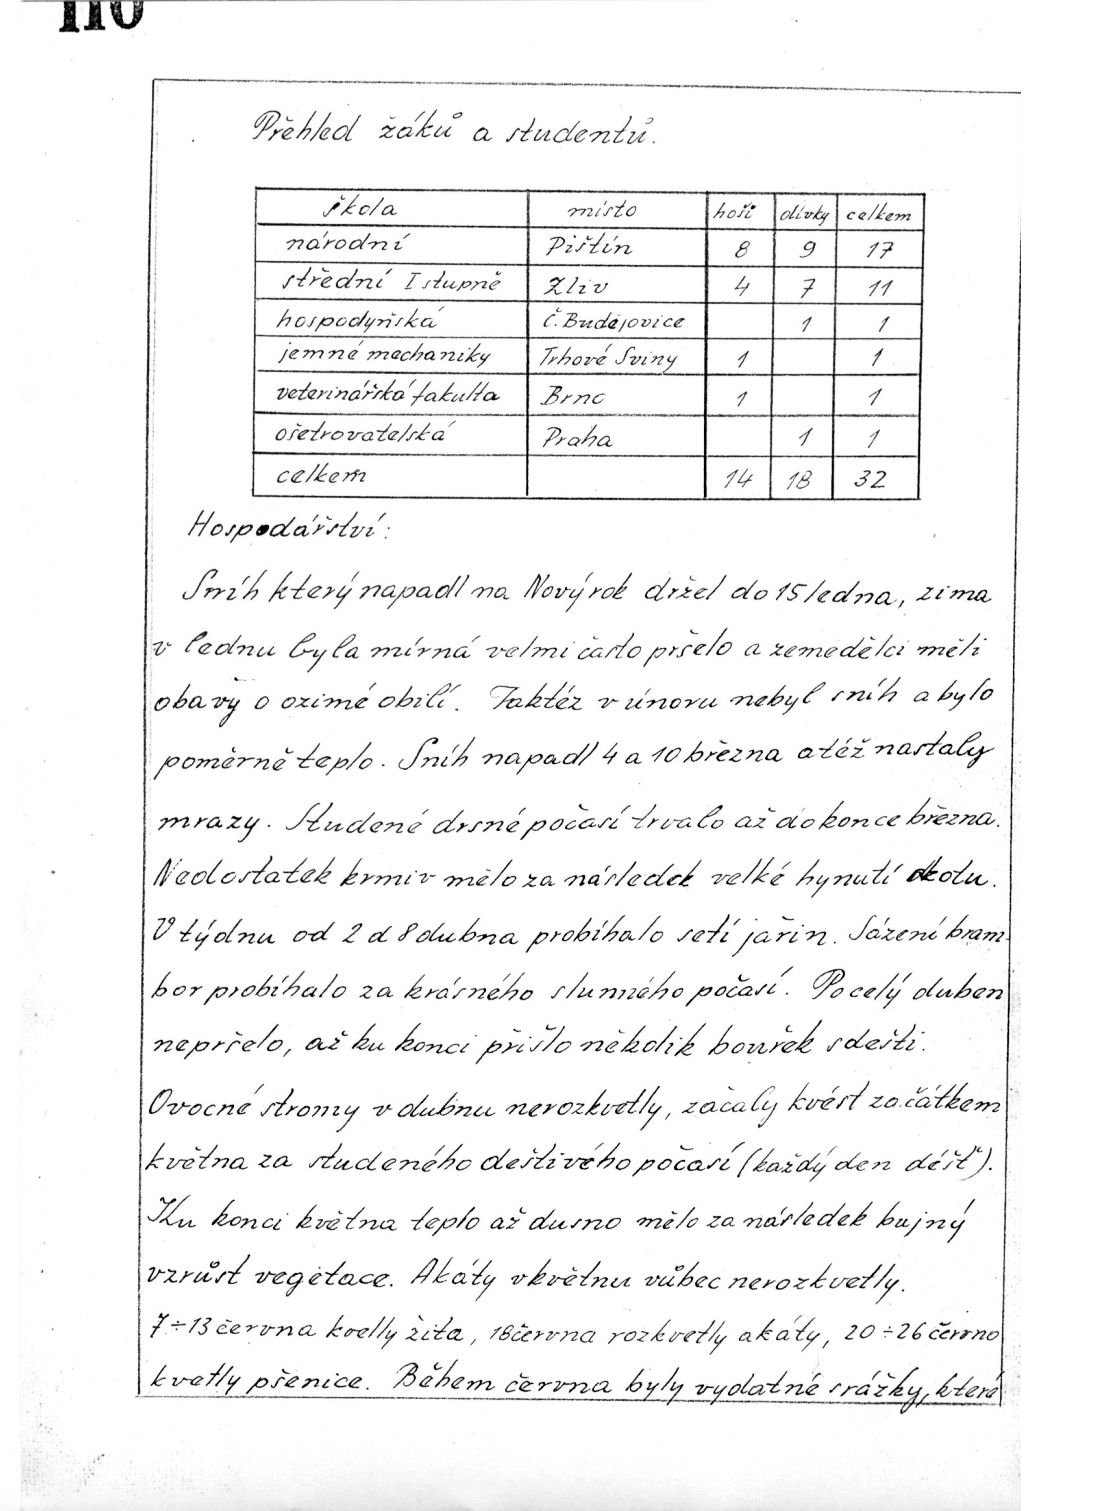 110
Přehled žáků a studentů.
škola místo hoší dívky celkem
národní Pištín 8 9 17
střední I stupně Zliv 4 7 11
hospodyňská Č. Budějovice 1 1
jemné mechaniky Trhové Sviny 1 1
veterinářská fakulta Brno 1 1
ošetrovatelská Praha 1 1
celkem 14 18 32
Hospodářství:
Sníh který napadl na Nový rok držel do 15 ledna, zima
v lednu byla mírná velmi často pršelo a zemedělci měli
obavy o ozimé obilí. Taktéz v únoru nebyl sníh a bylo
poměrně teplo. Sníh napadl 4 a 10 března a též nastaly
mrazy. Studené drsné počasí trvalo až do konce března.
Nedostatek krmiv mělo za následek velké hynutí skotu.
V týdnu od 2 d 8 dubna probíhalo setí jařin. Sázení bram
bor probíhalo za krásného slunného počasí. Po celý duben
nepršelo, až ku konci přišlo několik bouřek s dešti.
Ovocné stromy v dubnu nerozkvetly, začaly kvést začátkem
května za studeného deštivého počasí (každý den déšť).
Ku konci května teplo až dusno mělo za následek bujný
vzrůst vegetace. Akáty v květnu vůbec nerozkvetly.
7÷13 června kvetly žita, 18 června rozkvetly akáty, 20÷26 červno
kvetly pšenice. Během června byly vydatné srážky, které